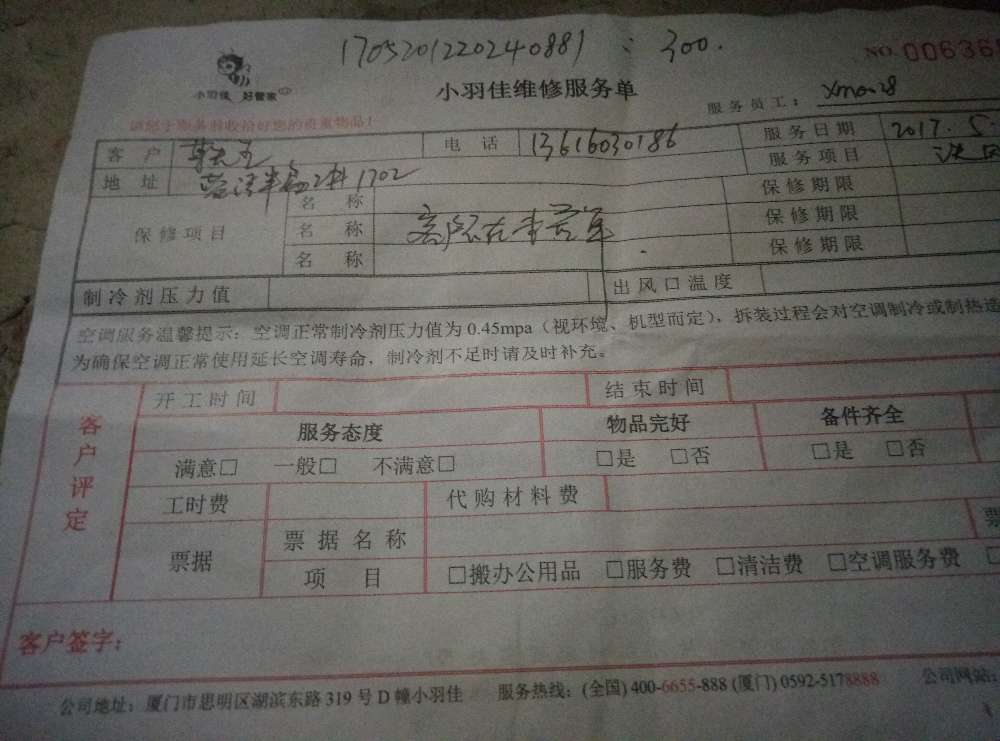 1705201220240881 : 300.
NO. 00636
小羽佳 好管家
小羽佳维修服务单
服务员工：
请您于服务前收拾好您的贵重物品！
客 户 电 话 13616030186 服务日期 2017.5
地 址 2 1702 服务项目
保修项目 名 称 保修期限
名 称 保修期限
名 称 保修期限
制冷剂压力值 出风口温度
空调服务温馨提示：空调正常制冷剂压力值为 0.45mpa（视环境、机型而定），拆装过程会对空调制冷或制热
为确保空调正常使用延长空调寿命，制冷剂不足时请及时补充。
客户评定
开工时间 结束时间
服务态度 物品完好 备件齐全
满意□ 一般□ 不满意□ □是 □否 □是 □否
工时费 代购材料费
票据 票据名称 票
项 目 □搬办公用品 □服务费 □清洁费 □空调服务费 □
客户签字：
公司地址：厦门市思明区湖滨东路 319 号 D 幢小羽佳 服务热线：(全国) 400-6655-888 (厦门) 0592-5178888 公司网站：